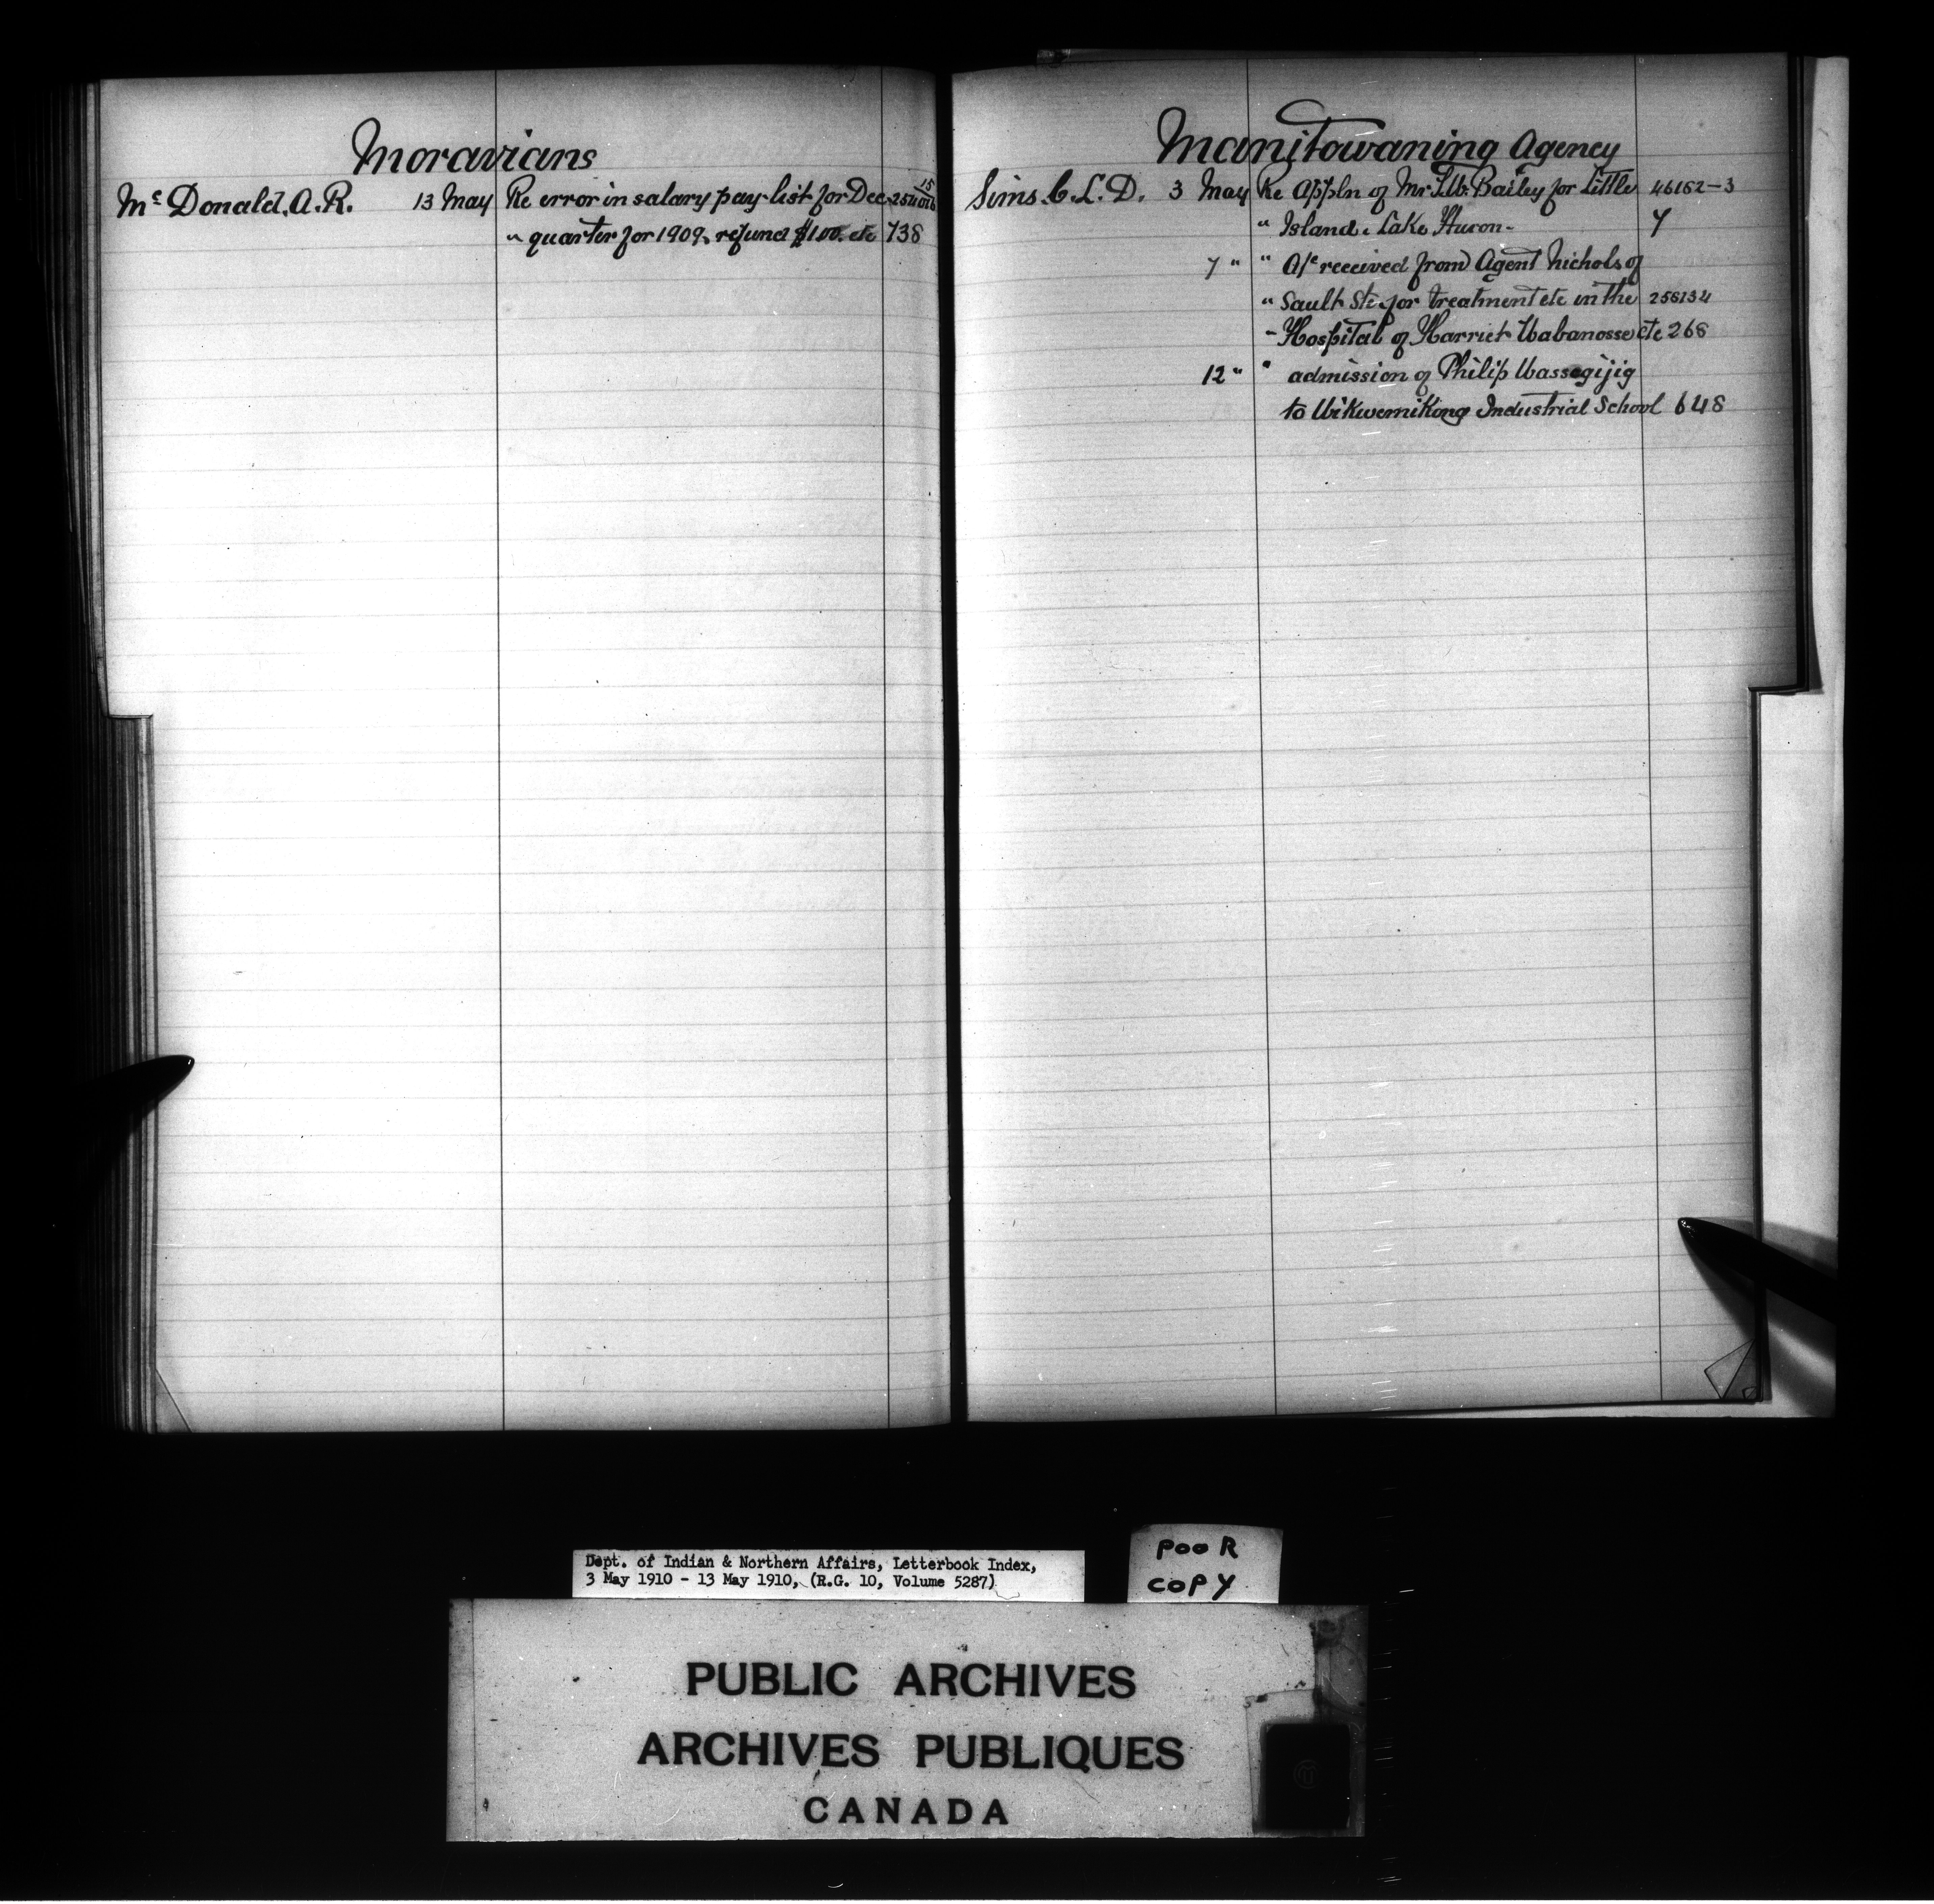 Moravians
Mc Donald. A. R. 13 May Re error in salary pay-list for Dec. 254016 15
" quarter for 1909, refund $1.00. etc 738
Manitowaning Agency
Sims. C. L. D. 3 May Re Appln of Mr T. W. Bailey for Little 46162-3
" Island. Lake Huron - 7
7 " " A/c received from Agent Nichols of
" Sault Ste. for treatment etc in the 256134
- Hospital of Harriet Wabanosse etc 268
12 " " admission of Philip Wassegijig
to Wikwemikong Industrial School 648
Dept. of Indian & Northern Affairs, Letterbook Index,
3 May 1910 - 13 May 1910, (R.G. 10, Volume 5287)
POOR
COPY
PUBLIC ARCHIVES
ARCHIVES PUBLIQUES
CANADA